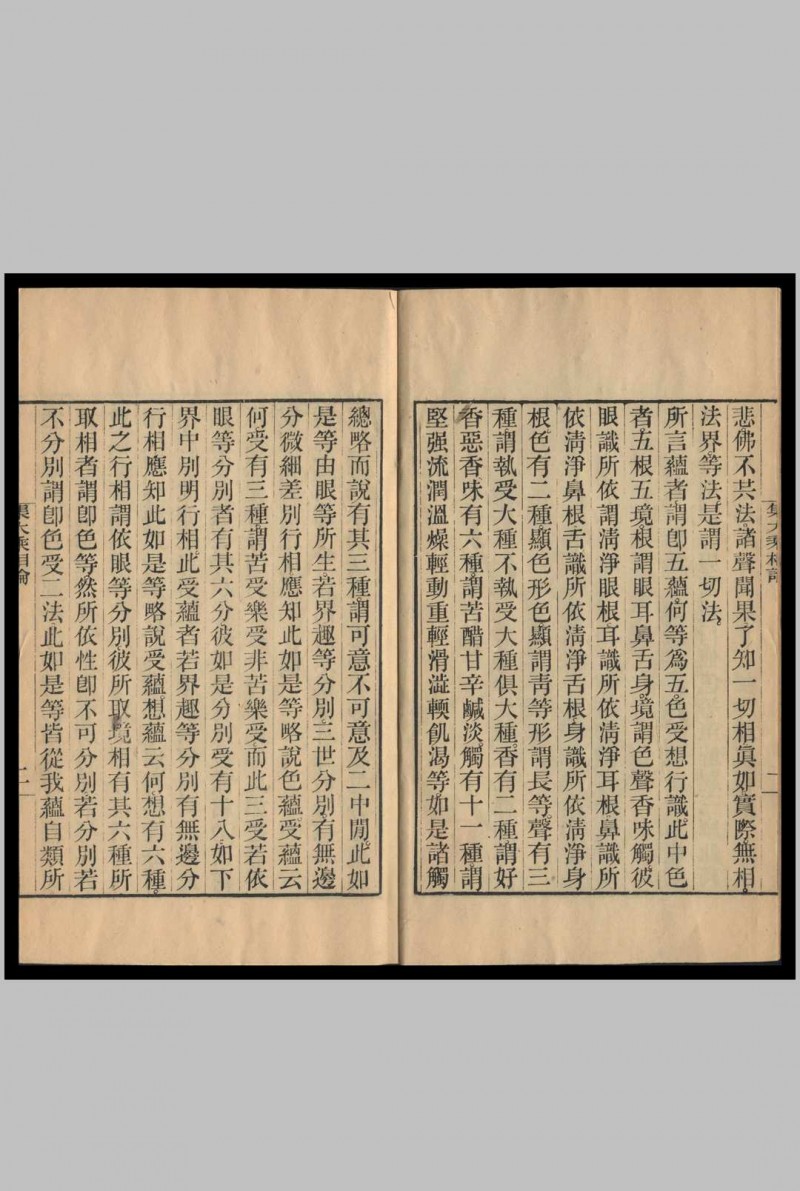 悲佛不共法諸聲聞果了知一切相眞如實際無相。
法界等法是謂一切法。
所言蘊者謂卽五蘊。何等爲五。色受想行識此中色
者五根五境根謂眼耳鼻舌身。境謂色聲香味觸彼
眼識所依謂淸淨眼根耳識所依淸淨耳根鼻識所
依淸淨鼻根舌識所依淸淨舌根身識所依淸淨身
根色有二種顯色形色顯謂靑等形謂長等。聲有三
種謂執受大種不執受大種俱大種。香有二種謂好
香惡香味有六種謂苦醋甘辛鹹淡觸有十一種謂
堅强流潤溫燥輕動重輕滑澁輭飢渴等如是諸觸
總略而說有其三種。謂可意不可意及二中閒。此如
是等由眼等所生若界趣等分別三世分別有無邊
分微細差別行相應知此如是等略說色蘊受蘊云
何受有三種謂苦受樂受非苦樂受而此三受若依
眼等分別者有其六分彼如是分別受有十八如下
界中別明行相。此受蘊者若界趣等分別有無邊分
行相應知此如是等略說受蘊想蘊云何想有六種。
此之行相謂依眼等分別彼所取境相有其六種所
取相者謂卽色等然所依性卽不可分別若分別若
不分別謂卽色受二法此如是等皆從我蘊自類所
集大乘相論
二